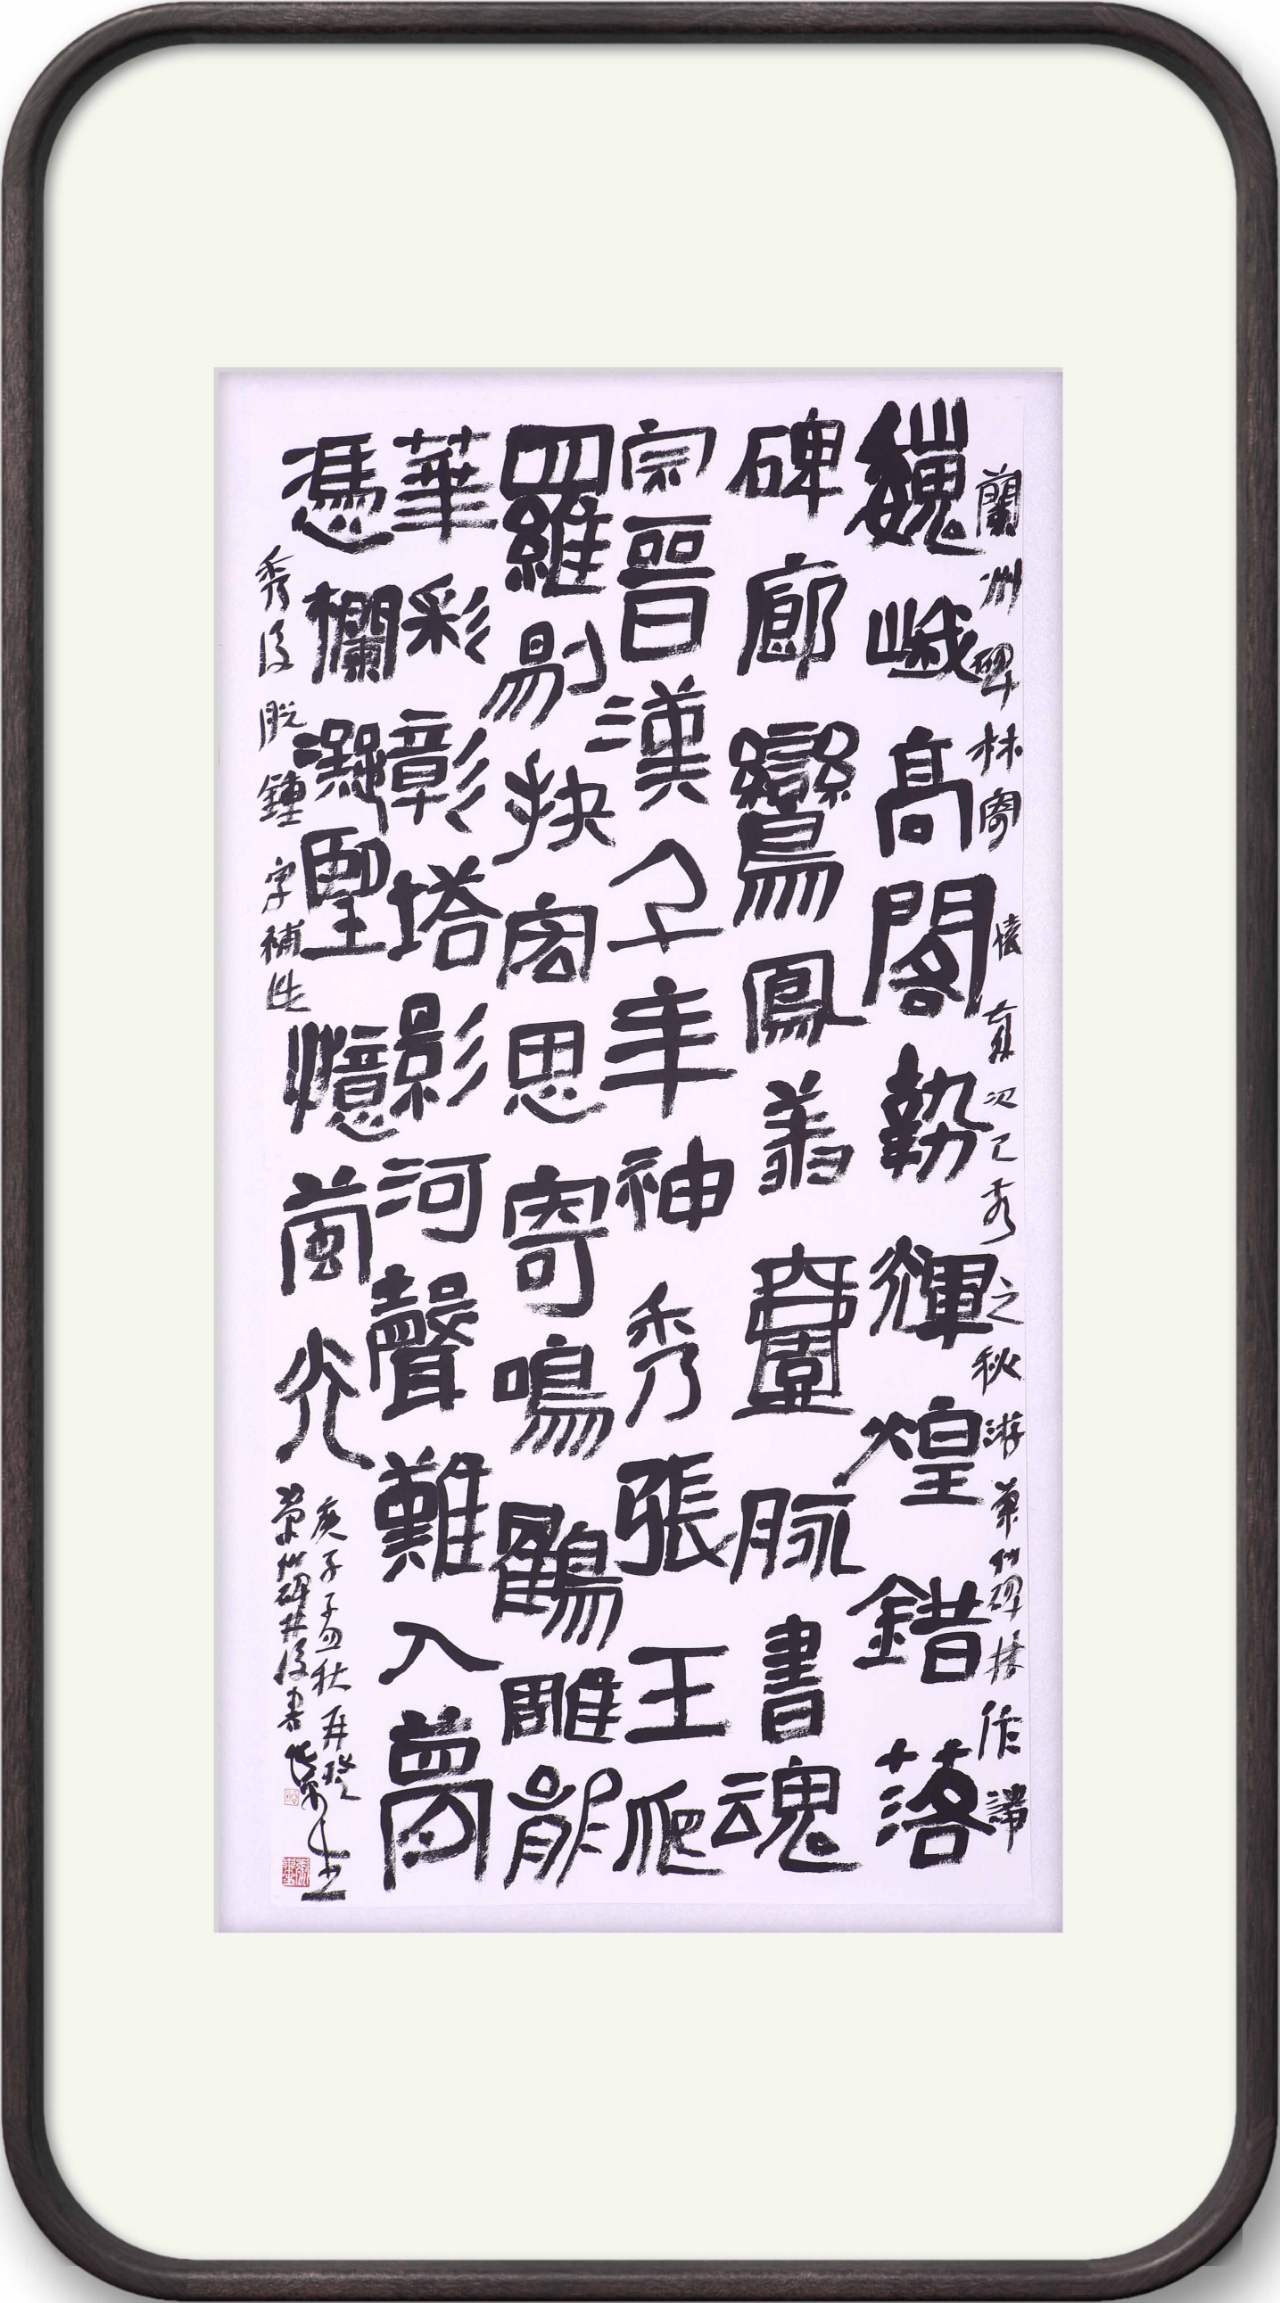 蘭州碑林寄懷 歲次己亥之秋游蘭州碑林作 譯
巍峨高閣勢輝煌錯落
碑廊鸞鳳翥臺脉書魂
宗晉漢千年神秀張王爬
羅剔抉宏思寄鳴鶴雕龍
華彩彰塔影河聲難入夢
憑欄凝望憶蘭光
秀後脫鍾字補之
庚子孟秋再登
蘭州碑林後書